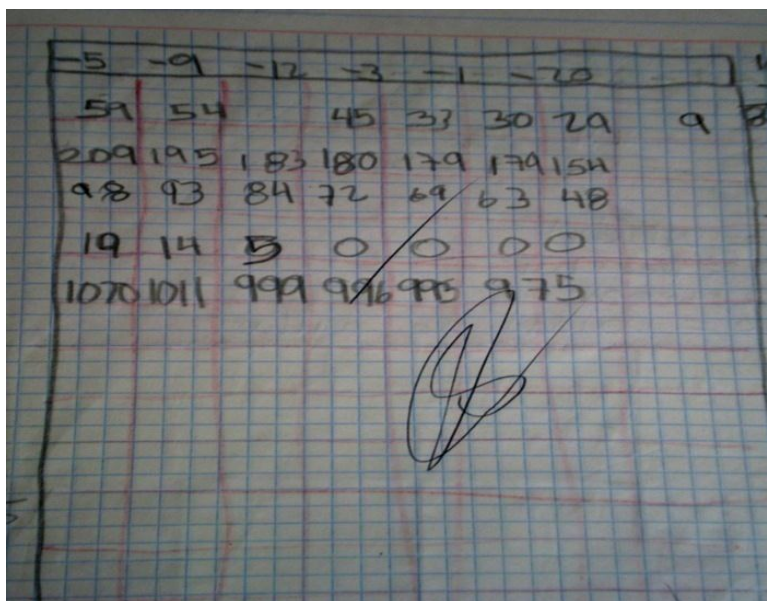 -5 -9 -12 -3 -1 -20
59 54 45 33 30 29 9
209 195 183 180 179 179 154
98 93 84 72 69 63 48
19 14 5 0 0 0 0
1070 1011 999 996 995 975